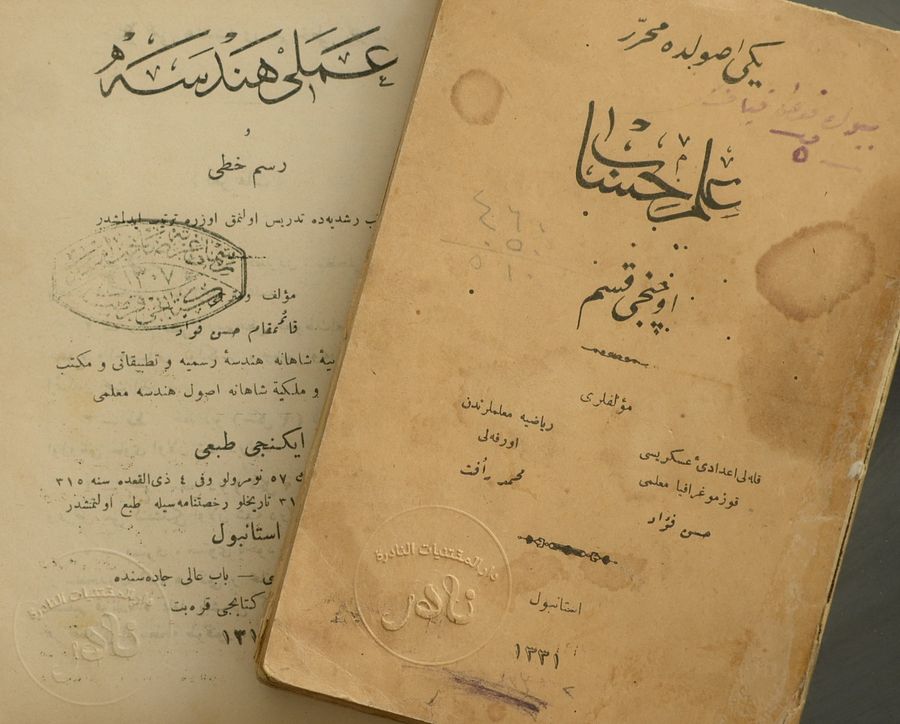 عملی هندسه
و
رسم خطی
رشدیه‌ده تدریس اولنمق اوزره ترتیب ایدلمشدر
١٣٠٧
مؤلف
قائممقام حسن فؤاد
شاهانه هندسهٔ رسمیه و تطبیقاتی و مکتب
و ملکیهٔ شاهانه اصول هندسه معلمی
ایکنجی طبعی
٥٧ نومرولو وفی ٤ ذی القعده سنه ٣١٥
تاریخلو رخصتنامه‌سیله طبع اولنمشدر
استانبول
باب عالی جاده‌سنده
کتابجی قره‌بت
یکی اصولده محرر
علم حساب
اوچنجی قسم
مؤلفلری
ریاضیه معلملرندن
اورفه‌لی
محمد رأفت
قله‌لی اعدادئ عسکریسی
قوزموغرافیا معلمی
حسن فؤاد
استانبول
١٣٣١
دار المقتنيات النادرة
نادر
دار المقتنيات النادرة
نادر